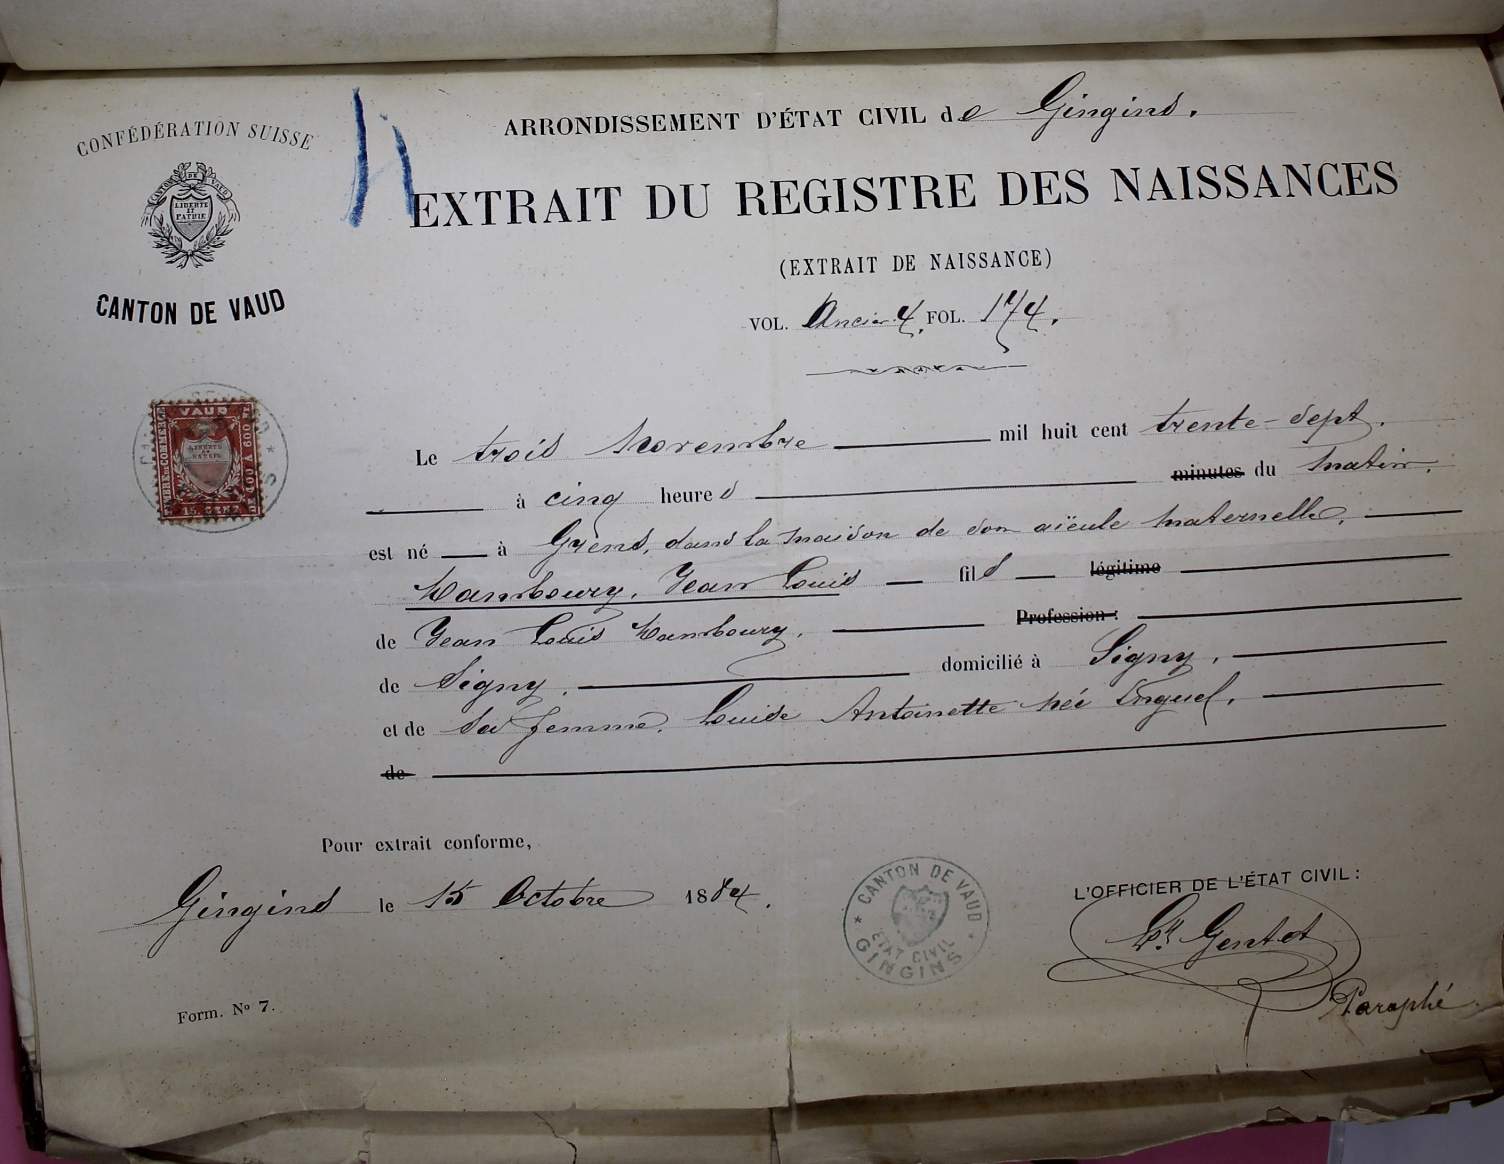 CONFÉDÉRATION SUISSE
CANTON DE VAUD
LIBERTÉ
ET
PATRIE
CANTON DE VAUD
ARRONDISSEMENT D'ÉTAT CIVIL de Gingins.
EXTRAIT DU REGISTRE DES NAISSANCES
(EXTRAIT DE NAISSANCE)
VOL. Ancien 4, FOL. 174.
VAUD
TIMBRE DE COMMERCE
LIBERTÉ
ET
PATRIE
400 À 600
15 CENT
Le trois Novembre mil huit cent trente-sept.
à cinq heures minutes du matin.
est né à Grens, dans la maison de son aïeule maternelle,
Mamboury, Jean Louis fils légitime
de Jean Louis Mamboury. Profession:
de Signy. domicilié à Signy,
et de sa femme, Louise Antoinette née
de
Pour extrait conforme,
Gingins le 15 Octobre 1884.
CANTON DE VAUD
ÉTAT CIVIL
GINGINS
L'OFFICIER DE L'ÉTAT CIVIL:
Gentet
Paraphé
Form. No 7.